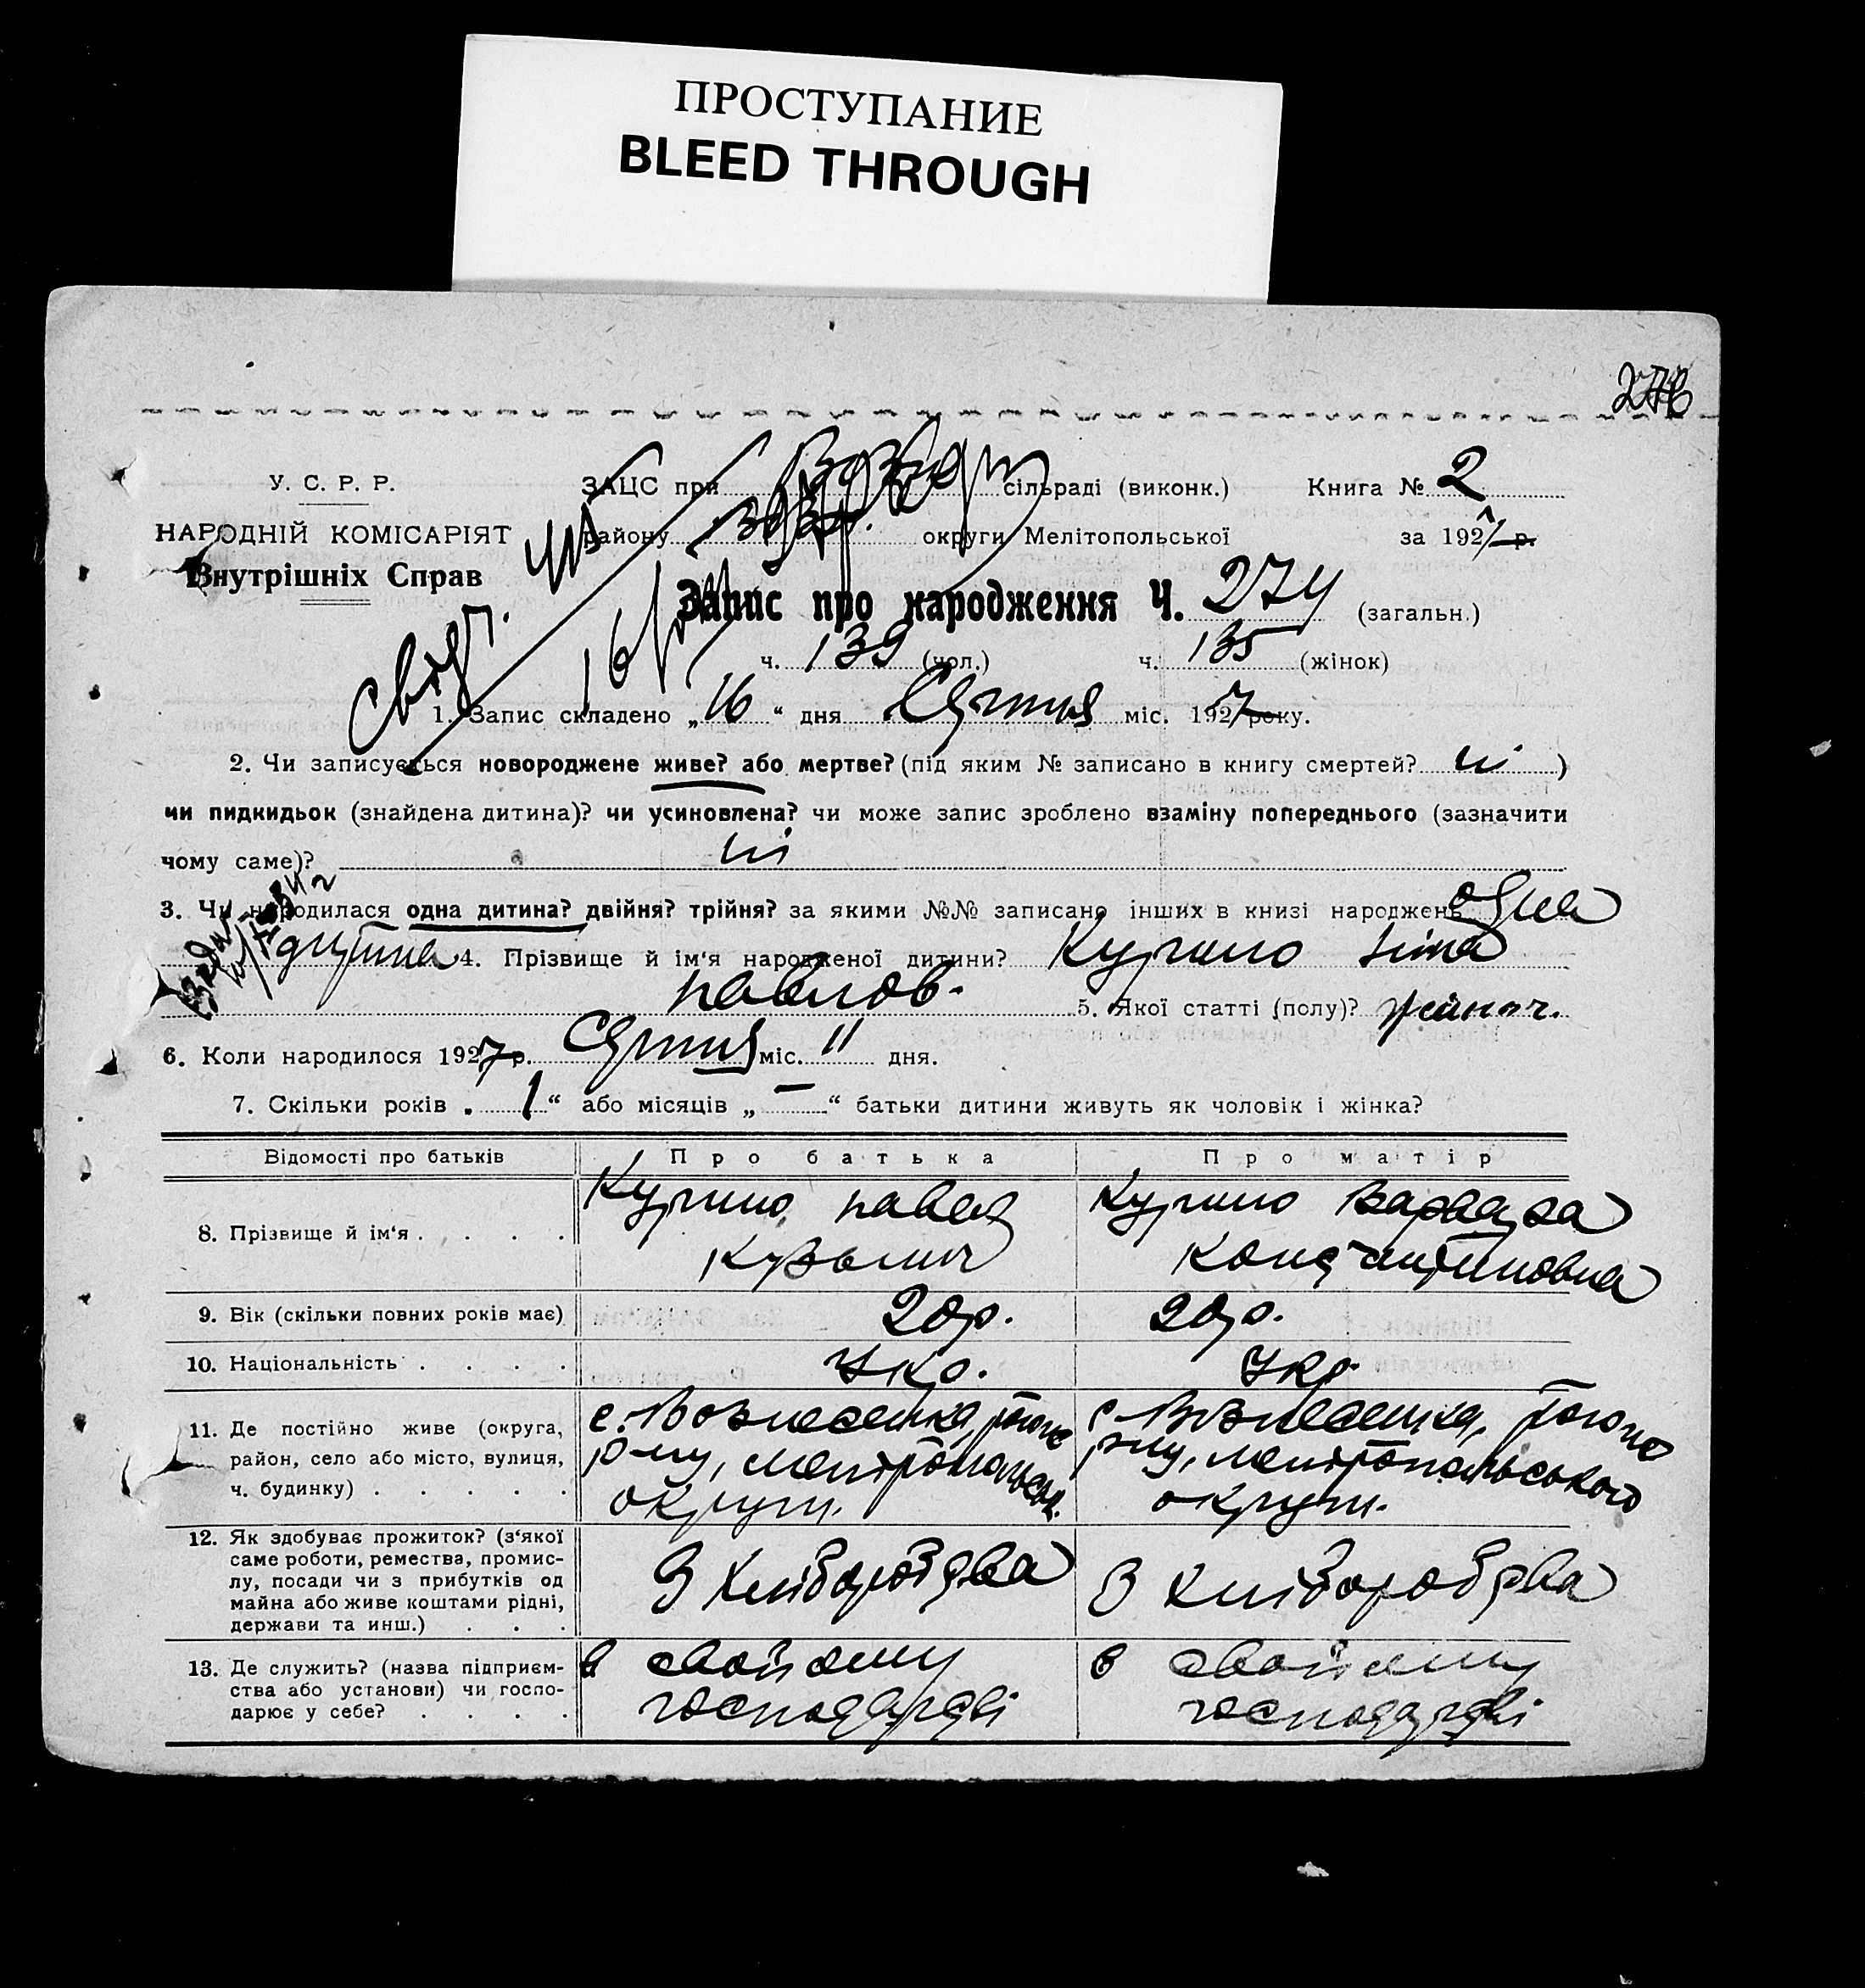 ПРОСТУПАНИЕ
BLEED THROUGH
У. С. Р. Р.
НАРОДНІЙ КОМІСАРІЯТ
Внутрішніх Справ
ЗАЦС при сільраді (виконк.) Книга № 2
району округи Мелітопольської за 1927 р.
Запис про народження Ч. 274 (загальн.)
ч. 139 (чол.) ч. 135 (жінок)
Свідч.
1. Запис складено „16“ дня Серпня міс. 1927 року.
2. Чи записується новороджене живе? або мертве? (під яким № записано в книгу смертей? ні )
чи пидкидьок (знайдена дитина)? чи усиновлена? чи може запис зроблено взаміну попереднього (зазначити
чому саме)? ні
3. Чи народилася одна дитина? двійня? трійня? за якими №№ записано інших в книзі народжень одна
дитина 4. Прізвище й ім‘я народженої дитини?
Павлов. 5. Якої статті (полу)? жіноч.
6. Коли народилося 1927 р. Серпня міс. 11 дня.
7. Скільки років „ 1 “ або місяців „ — “ батьки дитини живуть як чоловік і жінка?
Відомості про батьків Про батька Про матір
8. Прізвище й ім‘я . . . . Павел Варвара
Кузьмич Константиновна
9. Вік (скільки повних років має) 20 р. 20 р.
10. Національність . . . . Укр. Укр.
11. Де постійно живе (округа, с. Вознесенка, с. Вознесенка,
район, село або місто, вулиця, р-ну, Мелітопольськ. р-ну, Мелітопольського
ч. будинку) . . . . . округи. округи.
12. Як здобуває прожиток? (з‘якої
саме роботи, ремества, промис-
лу, посади чи з прибутків од З хліборобства З хліборобства
майна або живе коштами рідні,
держави та инш.) . . .
13. Де служить? (назва підприєм- в свойому в свойому
ства або установи) чи госпо- господарстві господарстві
дарює у себе? . . . .